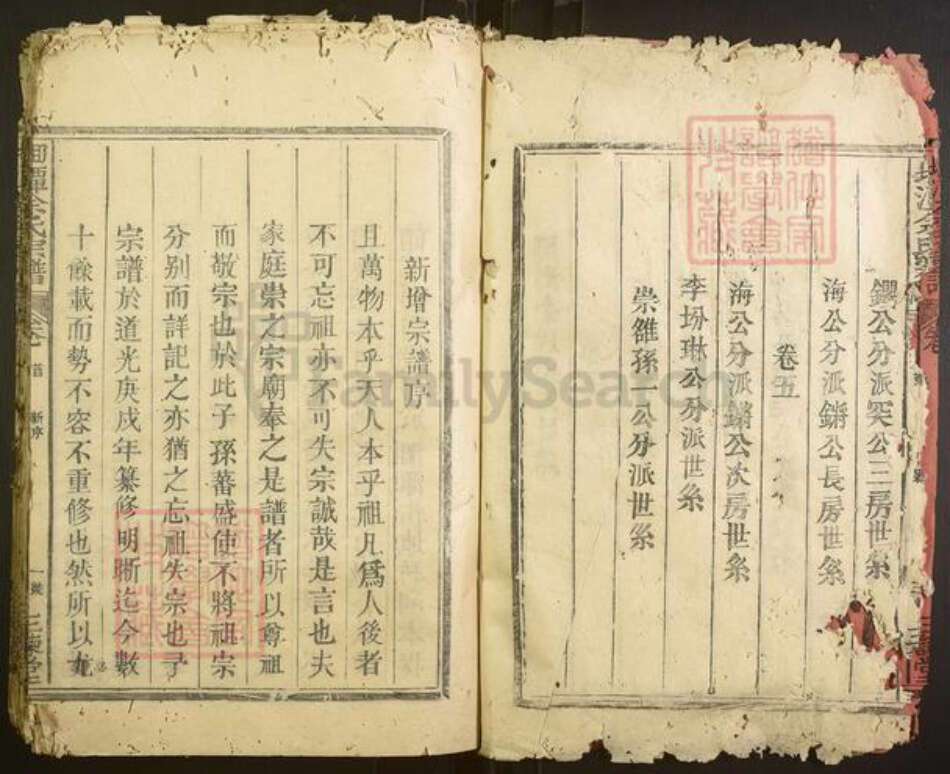 鑽公分派突公三房世系
海公分派鏘公長房世系
卷五
海公分派鏘公次房世系
李坋琳公分派世系
崇雒孫一公分派世系
新增宗譜序
且萬物本乎天人本乎祖凡爲人後者
不可忘祖亦不可失宗誠哉是言也夫
家庭崇之宗廟奉之是譜者所以尊祖
而敬宗也於此子孫蕃盛使不將祖宗
分別而詳記之亦猶之忘祖失宗也予
宗譜於道光庚戌年纂修明晣迄今數
十餘載而勢不容不重修也然所以尢
氏宗譜
卷
首
新序
一
FamilySearch